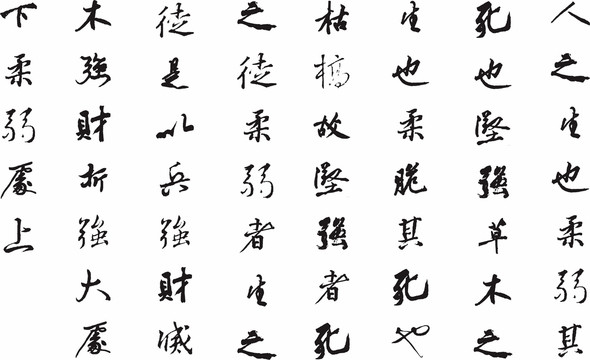 人之生也柔弱其
死也堅強草木之
生也柔脆其死也
枯槁故堅強者死
之徒柔弱者生之
徒是以兵強財滅
木強財折強大處
下柔弱處上